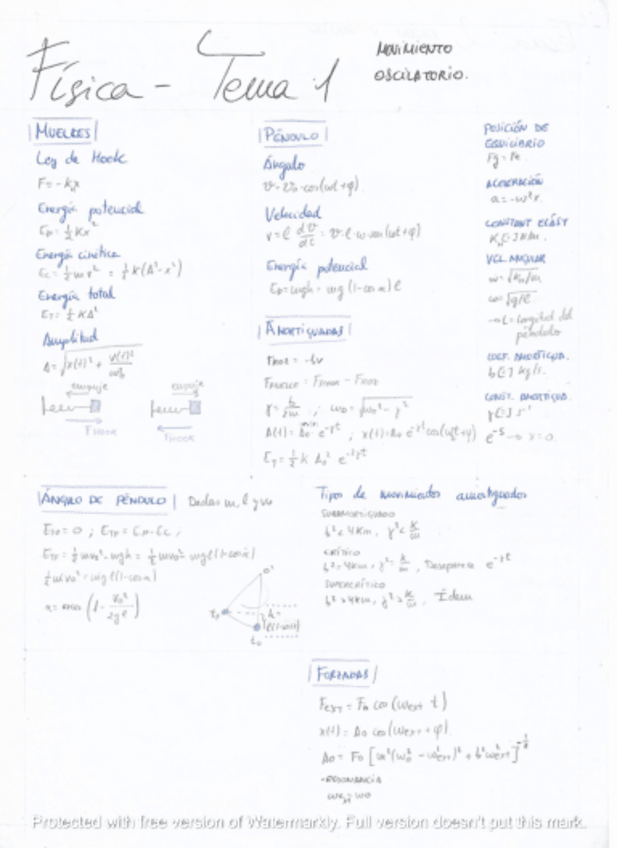 Física - Tema 1
MOVIMIENTO
OSCILATORIO.
|MUELLES|
Ley de Hook
F = -kx
Energía potencial
Ep = ½ Kx²
Energía cinética
Ec = ½ mv² = ½ K(A² - x²)
Energía total
ET = ½ KA²
Amplitud
empuje
empuje
FHOOK
FHOOK
|PÉNDULO|
Ángulo
Velocidad
Energía potencial
Ep = mgh = mg (1 - cos α) l
|AMORTIGUADAS|
FAOR = -bv
A(t) = A₀ e^-γt ; x(t) = A₀ e^-γt cos(ωt+φ)
POSICIÓN DE
EQUILIBRIO
Fg = Fe
ACELERACIÓN
a = -ω²x
CONSTANT ELÁST
VEL ANGULAR
ω = √g/l
→ L = longitud del
péndulo
COEF. AMORTIGUA.
b [=] kg/s.
CONST. AMORTIGUA.
γ [=] s⁻¹
|ÁNGULO DE PÉNDULO| Dadas m, l y v₀
½ mv₀² = mgl(1-cos α)
Tipos de movimientos amortiguados
SUBAMORTIGUADO
b² < 4Km, γ² < K/m
CRÍTICO
b² = 4Km, γ² = K/m, Desaparece e^-γt
SUPERCRÍTICO
b² > 4Km, γ² > K/m, Ídem
|FORZADAS|
FEXT = F₀ cos (ωext t)
x(t) = A₀ cos (ωext + φ)
A₀ = F₀ [m²(ω₀² - ωext²)² + b²ωext²]^-½
-RESONANCIA
ωext = ω₀
Protected with free version of Watermarkly. Full version doesn't put this mark.